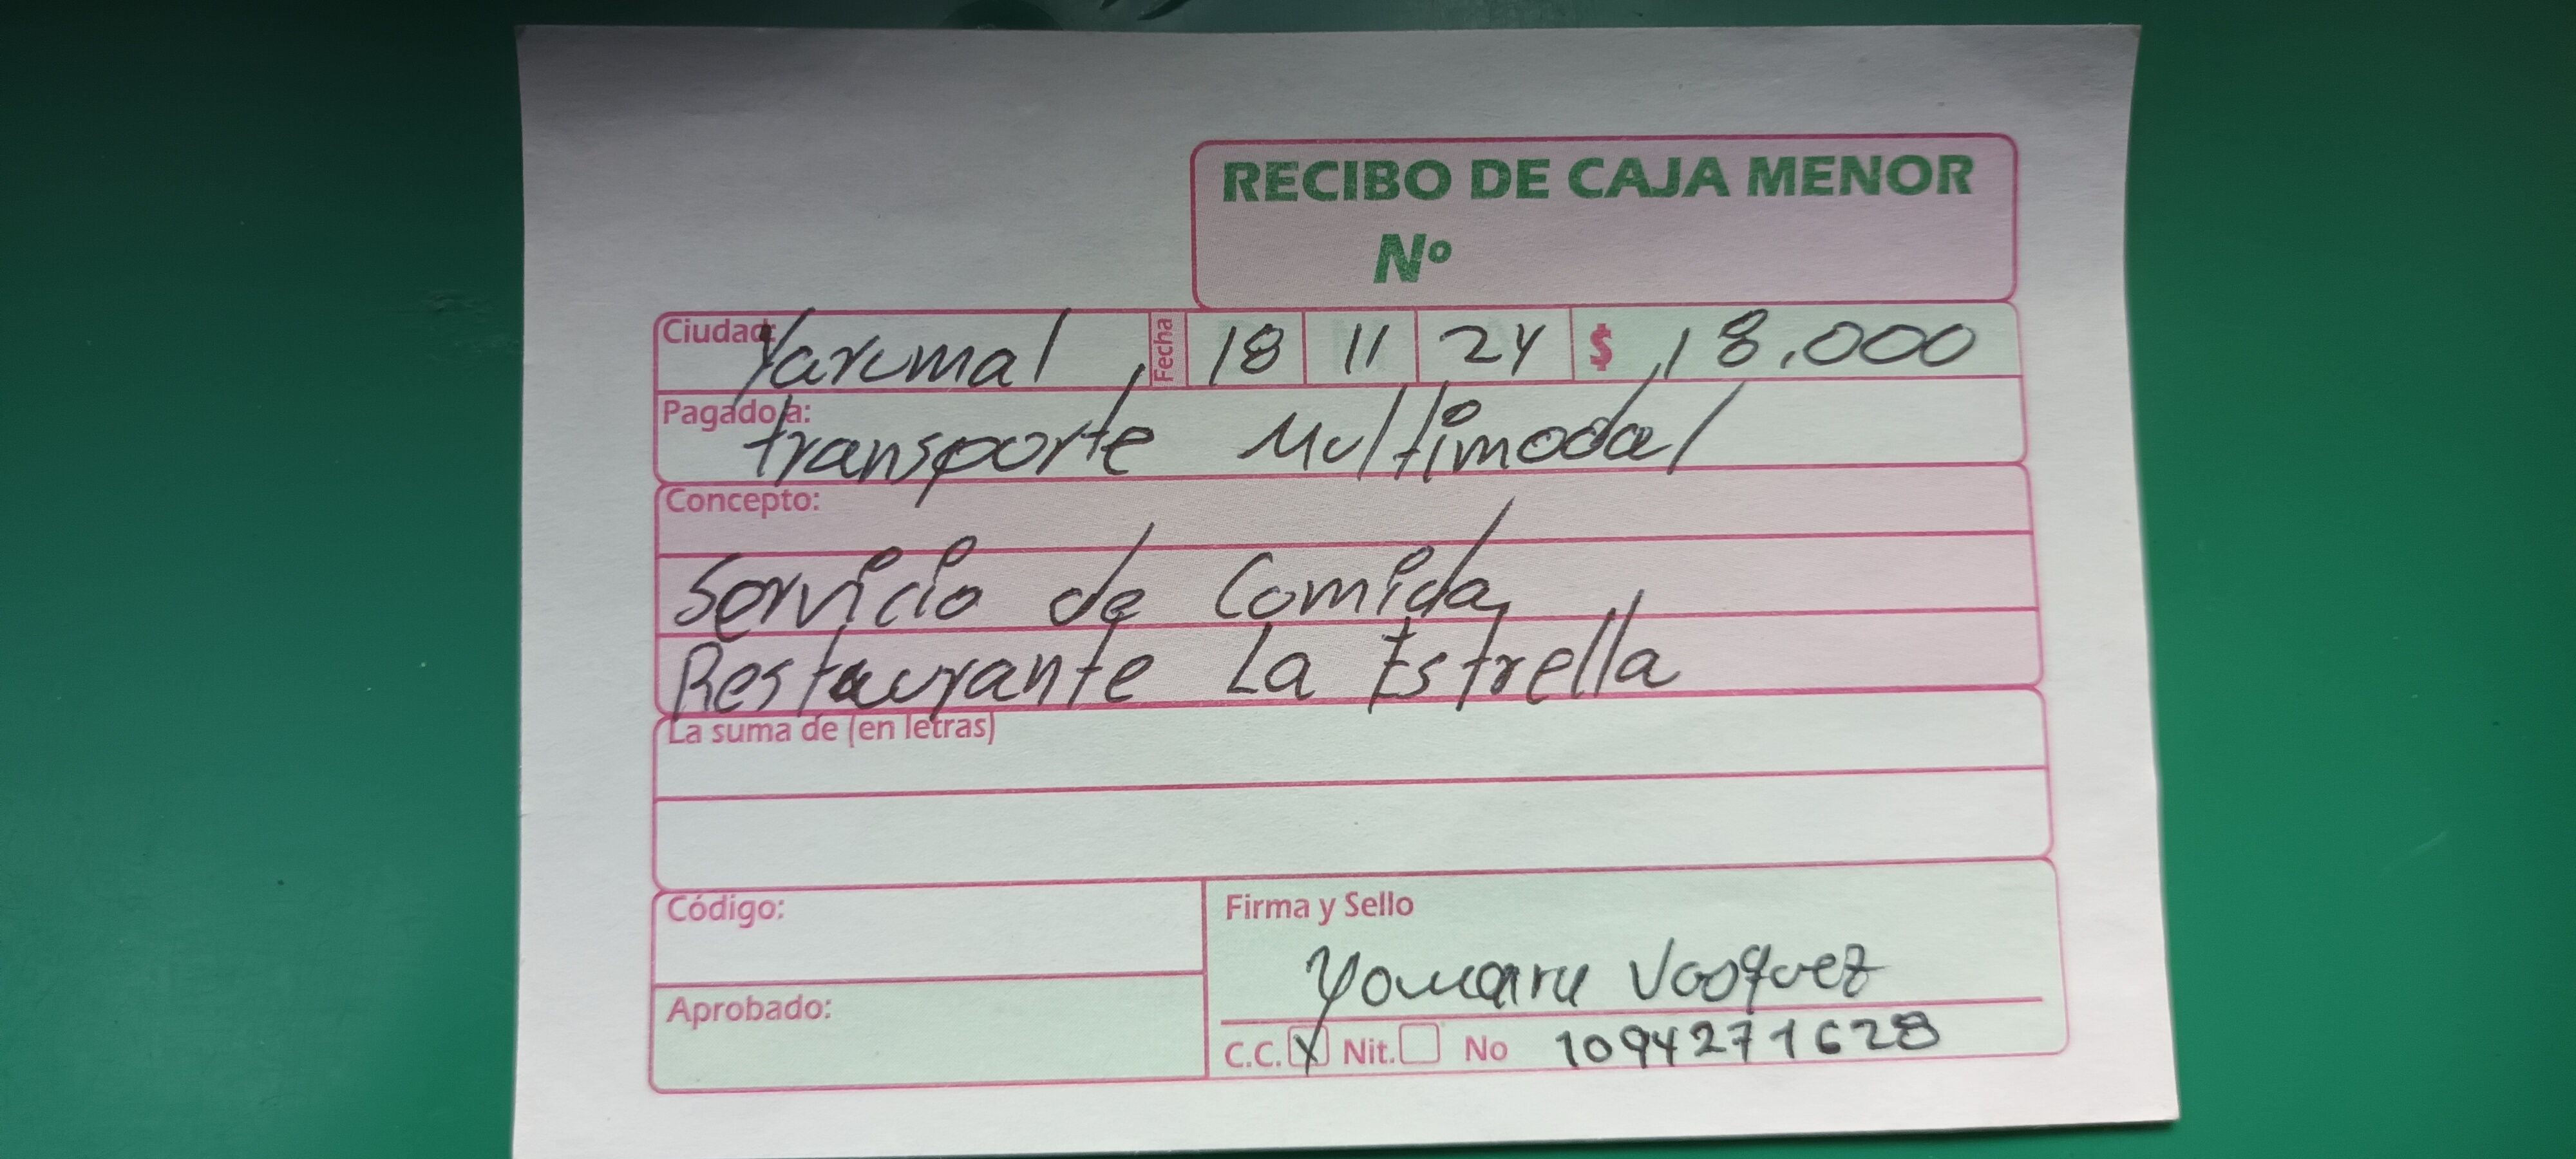 RECIBO DE CAJA MENOR
Nº
Ciudad: Yarumal, Fecha 18 11 24 $ 18.000
Pagado a: transporte Multimodal
Concepto:
Servicio de Comida
Restaurante La Estrella
La suma de (en letras)
Código:
Firma y Sello
Vasquez
Aprobado:
C.C. X Nit. No 1094271628